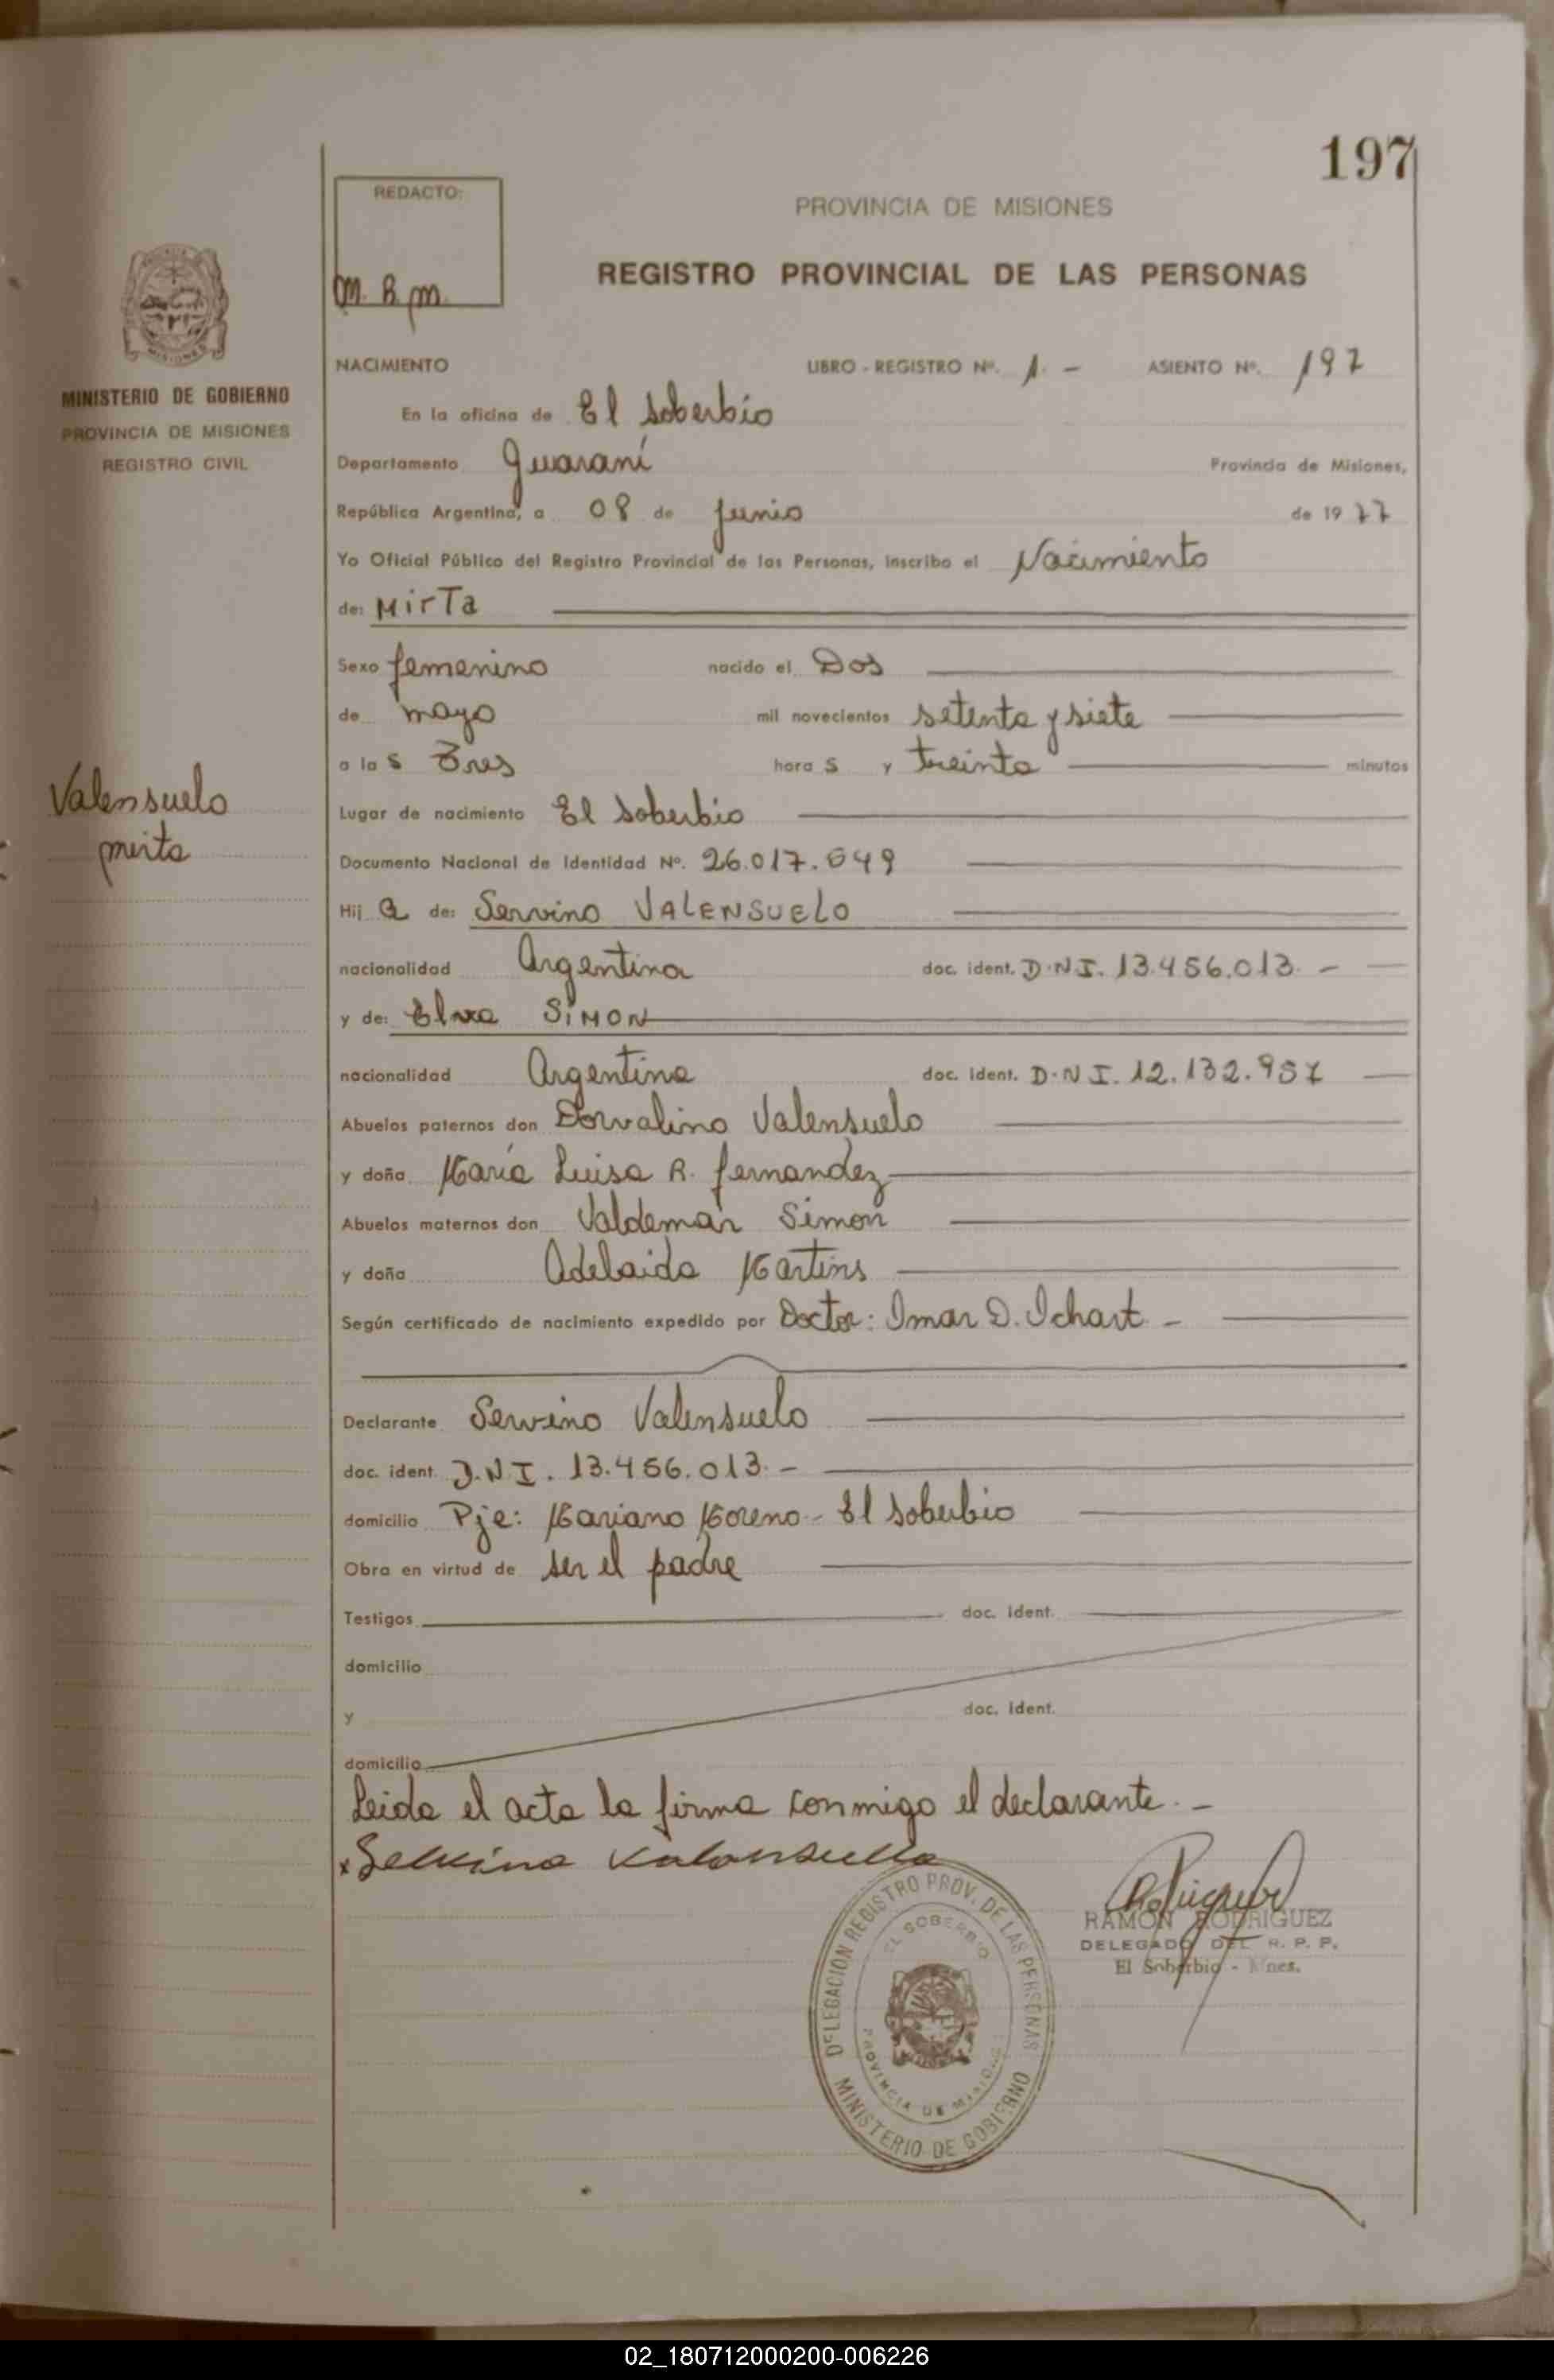 197
REDACTO:
M. B. M.
PROVINCIA DE MISIONES
REGISTRO PROVINCIAL DE LAS PERSONAS
MINISTERIO DE GOBIERNO
PROVINCIA DE MISIONES
REGISTRO CIVIL
NACIMIENTO LIBRO - REGISTRO Nº. 1. - ASIENTO Nº. 197
En la oficina de El Soberbio
Departamento Guaraní Provincia de Misiones,
República Argentina, a 08 de Junio de 1977
Yo Oficial Público del Registro Provincial de las Personas, inscribo el Nacimiento
de: MirTa
Sexo femenino nacido el Dos
de mayo mil novecientos setenta y siete
a la s Tres hora s y treinta minutos
Valensuelo
mirta
Lugar de nacimiento El Soberbio
Documento Nacional de Identidad Nº. 26.017.649
Hij a de: Servino VALENSUELO
nacionalidad Argentina doc. ident. D.N.I. 13.456.013. -
y de: Elvva SIMON
nacionalidad Argentina doc. ident. D.N.I. 12.132.957
Abuelos paternos don Dorvalino Valensuelo
y doña Maria Luisa R. Fernandez
Abuelos maternos don Valdemar Simon
y doña Adelaida Martins
Según certificado de nacimiento expedido por Doctor: Imar D. Ichart -
Declarante Servino Valensuelo
doc. ident. D.N.I. 13.456.013. -
domicilio Pje: Mariano Moreno - El Soberbio
Obra en virtud de ser el padre
Testigos doc. ident.
domicilio
y doc. ident.
domicilio
Leida el acta la firma conmigo el declarante. -
x Selvino Valensuello
RAMON RODRIGUEZ
DELEGADO DEL R. P. P.
El Soberbio - Mnes.
DELEGACION REGISTRO PROV. DE LAS PERSONAS
EL SOBERBIO
PROVINCIA DE MISIONES
MINISTERIO DE GOBIERNO
02_180712000200-006226